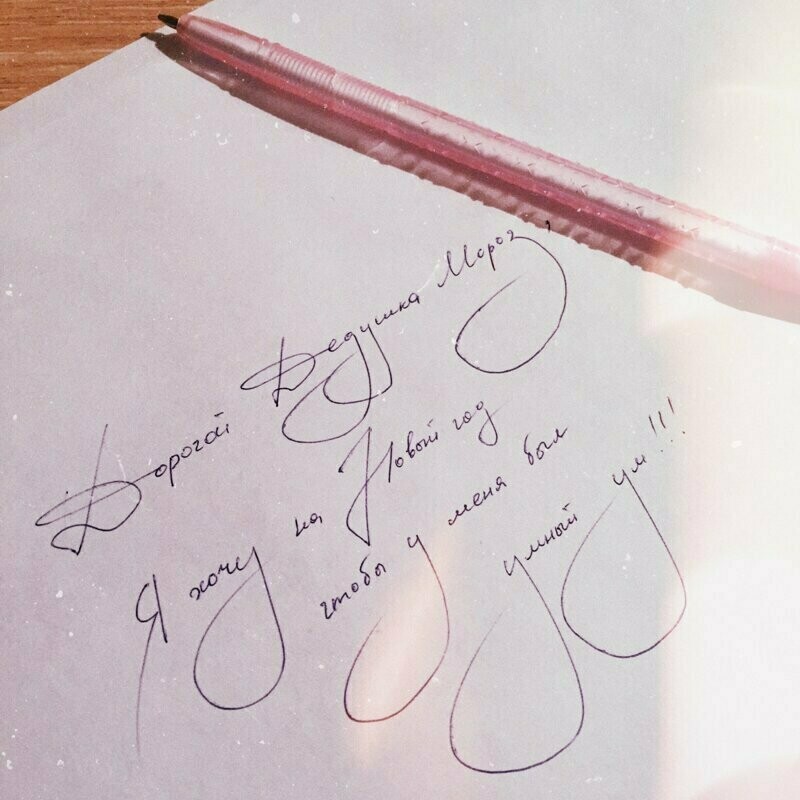 Дорогой Дедушка Мороз,
Я хочу на Новый год
чтобы у меня был
умный ум!!!